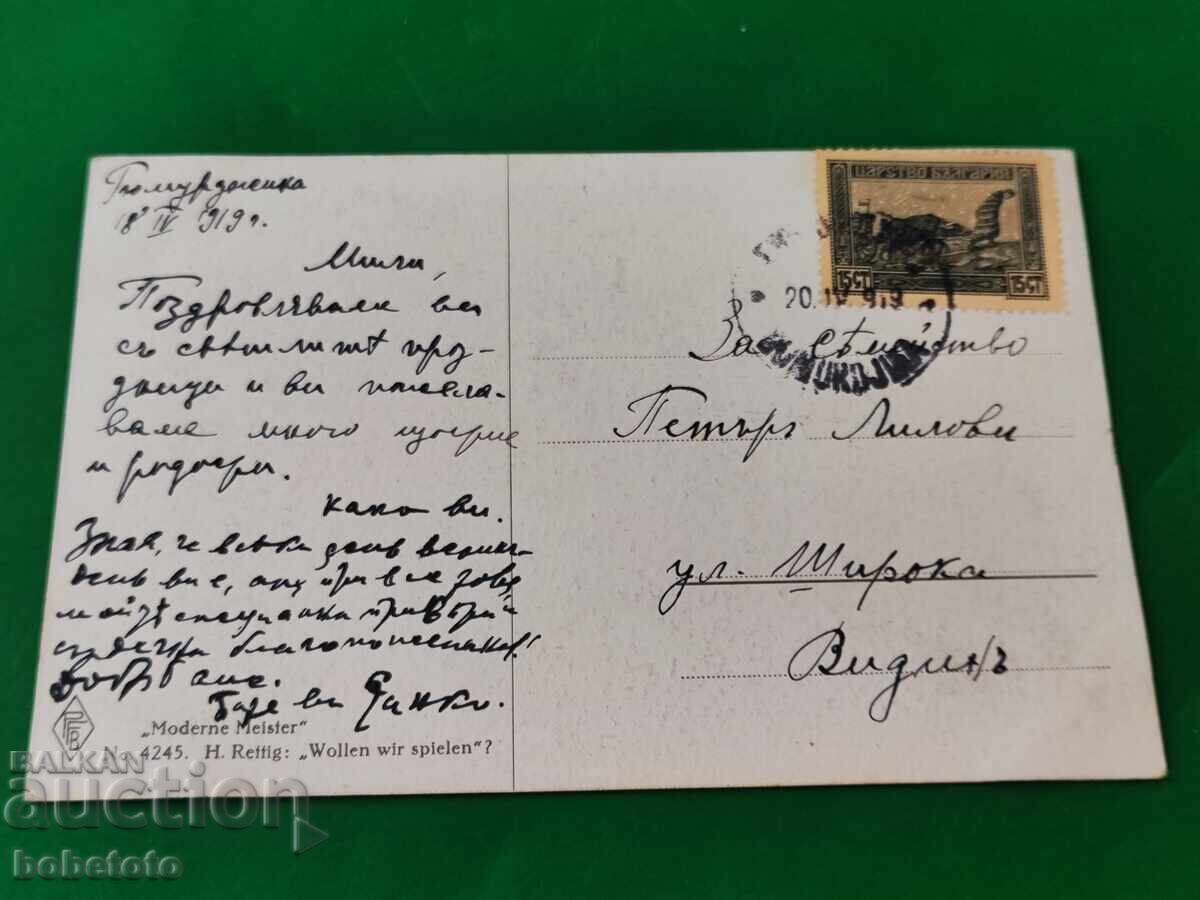 Гюмурджина
18 IV 919 г.
Мили,
Поздровляваме ви
съ свѣтлитѣ праз-
дници и ви пожела-
ваме много щастие
и радости.
како ви.
Зная, че всѣки день велик-
день ви е,
благопожелания!
Бате ви Санко.
"Moderne Meister"
No. 4245. H. Rettig: „Wollen wir spielen"?
ЦАРСТВО БЪЛГАРИЯ
15 СТ 15 СТ
20. IV 919
За семейство
Петъръ Лилови
ул. Широка
Видинъ
BALKAN
auction
bobetoto